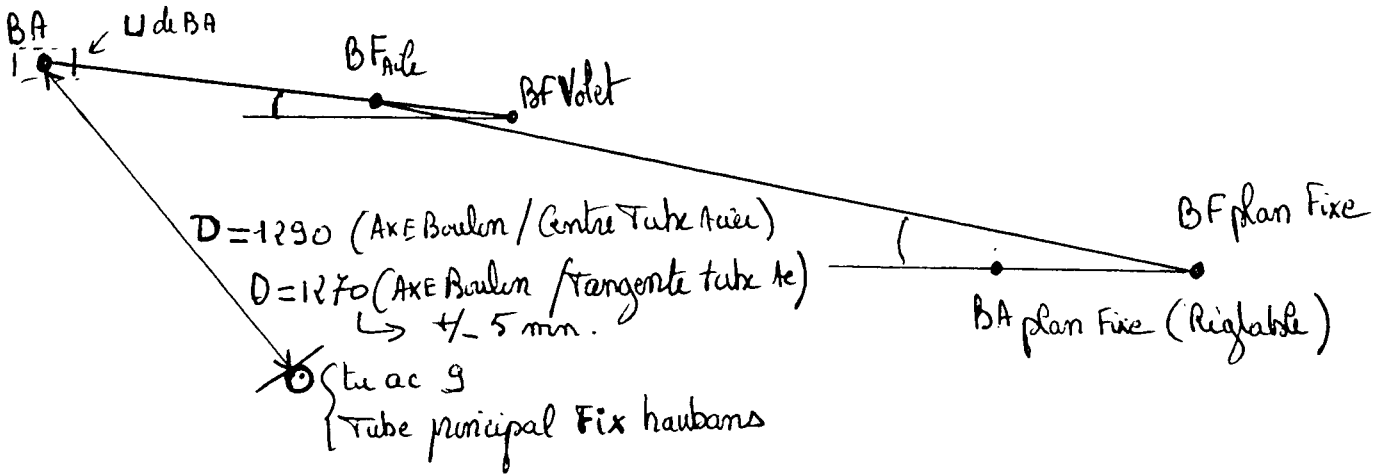 BA
U de BA
BF Aile
BF Volet
D=1290 (AXE Boulon / Centre Tube Acier)
D=1270 (AXE Boulon / Tangente tube Ac)
↳ +/- 5 mm.
BF plan Fixe
BA plan Fixe (Réglable)
tu ac 9
Tube principal Fix haubans